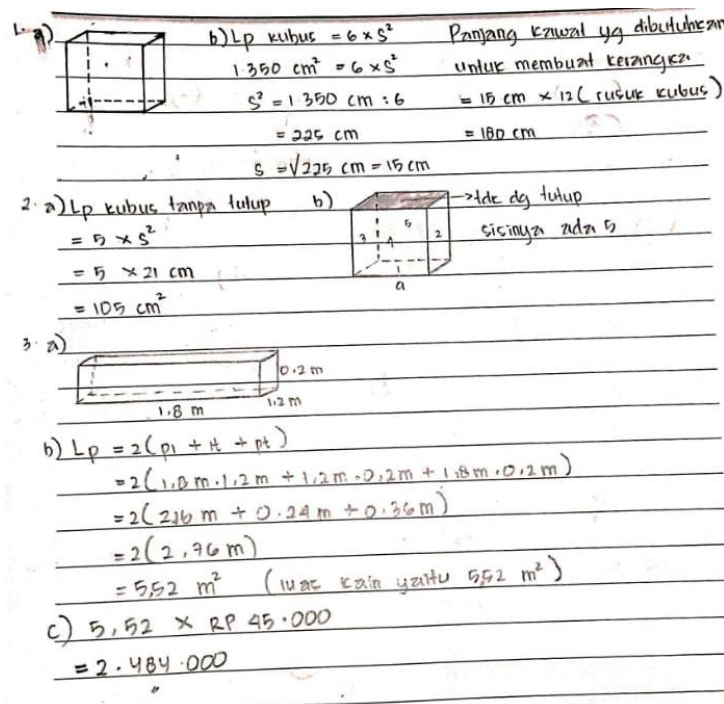 1. a)
b) Lp kubus = 6 × s²
1.350 cm² = 6 × s²
s² = 1.350 cm : 6
= 225 cm
s = √225 cm = 15 cm
Panjang kawat yg dibutuhkan
untuk membuat kerangka
= 15 cm × 12 (rusuk kubus)
= 180 cm
2. a) Lp kubus tanpa tutup
= 5 × s²
= 5 × 21 cm
= 105 cm²
b)
→ tdk dg tutup
sisinya ada 5
5
3 1 4 2
a
3. a)
0.2 m
1.2 m
1.8 m
b) Lp = 2(pl + lt + pt)
= 2(1,8 m . 1,2 m + 1,2 m . 0,2 m + 1,8 m . 0,2 m)
= 2(2,16 m + 0.24 m + 0.36 m)
= 2(2,76 m)
= 5,52 m² (luas kain yaitu 5,52 m²)
c) 5,52 × RP 45.000
= 2.484.000